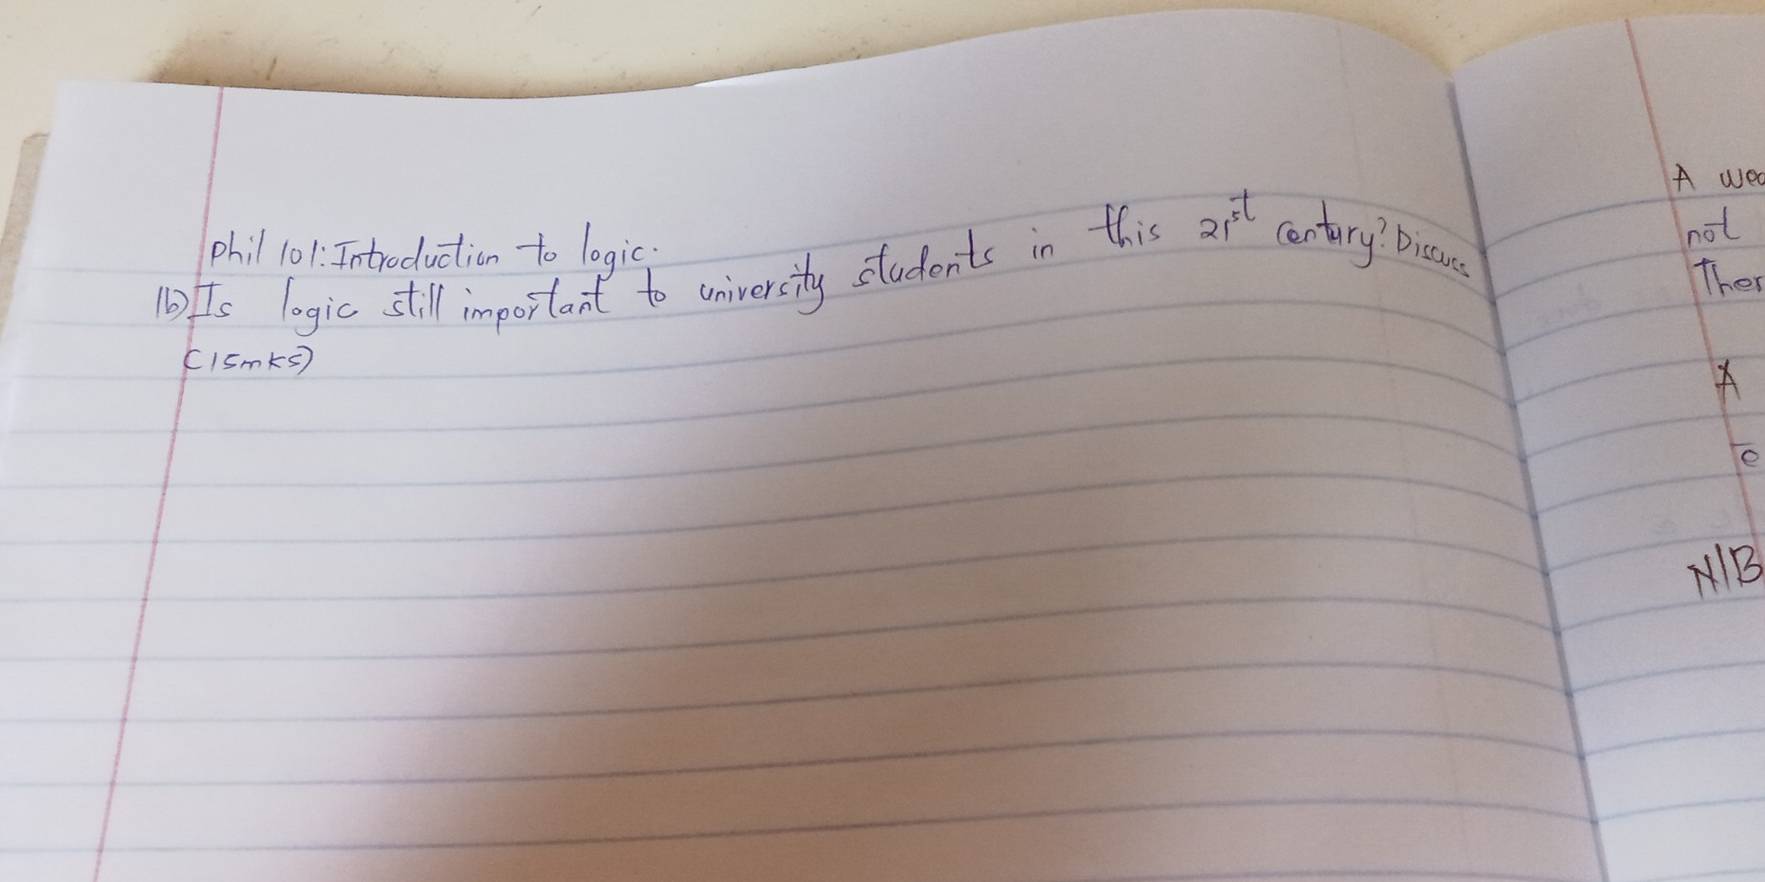 Phil 101: Introduction to logic.
1b) Is logic still important to university students in this 21st century? Discuss
(15mks)
A
not
A
N/B